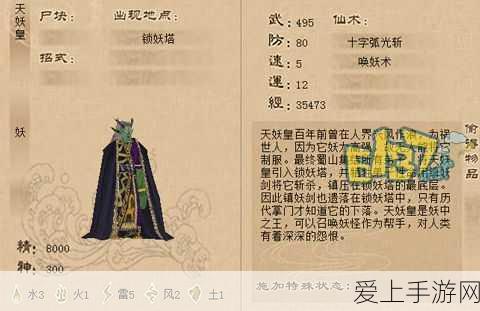 天妖皇
尸块：
出现地点：
锁妖塔
招式：
妖
精：8000
神：300
水3 火1 雷5 风2 土1
武：495
防：80
速：5
運：12
經：35473
仙术：
十字弧光斩
唤妖术
天妖皇百年前曾在人界
为祸
世人，因为它妖力高强
制服。最终蜀山集
天妖
皇引入锁妖塔，并
剑将它斩杀，镇压在锁妖塔的最底层。
因此镇妖剑也遗落在锁妖塔中，只有历
代掌门才知道它的下落。天妖皇是妖中
之王，可以召唤妖怪作为帮手，对人类
有着深深的怨恨。
偷得物品
施加特殊状态：
爱上手游网